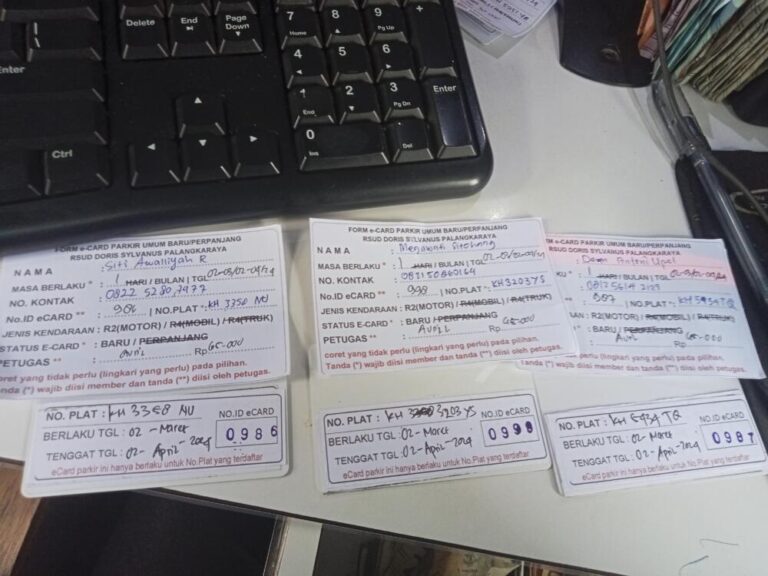 Delete
End
Page Down
7 Home
8
9 Pg Up
+
4
5
6
Enter
1 End
2
3 Pg Dn
Enter
Ctrl
0 Ins
. Del
FORM e-CARD PARKIR UMUM BARU/PERPANJANG
RSUD DORIS SYLVANUS PALANGKARAYA
NAMA : Siti Awaliyah R
MASA BERLAKU * : 1 HARI / BULAN | TGL
NO. KONTAK : 0822 5280 7477
No.ID eCARD ** : 986 | NO.PLAT * : KH 3350 NU
JENIS KENDARAAN : R2(MOTOR) / R4(MOBIL) / R4(TRUK)
STATUS E-CARD * : BARU / PERPANJANG
PETUGAS ** : Avril Rp 65.000
coret yang tidak perlu (lingkari yang perlu) pada pilihan.
Tanda (*) wajib diisi member dan tanda (**) diisi oleh petugas.
NO. PLAT : KH 3358 NU
NO.ID eCARD
BERLAKU TGL : 02 - Maret
0986
TENGGAT TGL : 02 - April - 2024
eCard parkir ini hanya berlaku untuk No.Plat yang terdaftar
FORM e-CARD PARKIR UMUM BARU/PERPANJANG
RSUD DORIS SYLVANUS PALANGKARAYA
NAMA :
MASA BERLAKU * : 1 HARI / BULAN | TGL
NO. KONTAK : 083150860164
No.ID eCARD ** : 998 | NO.PLAT * : KH 3203 YS
JENIS KENDARAAN : R2(MOTOR) / R4(MOBIL) / R4(TRUK)
STATUS E-CARD * : BARU / PERPANJANG
PETUGAS ** : Avril Rp 65.000
coret yang tidak perlu (lingkari yang perlu) pada pilihan.
Tanda (*) wajib diisi member dan tanda (**) diisi oleh petugas.
NO. PLAT : KH 3203 YS
NO.ID eCARD
BERLAKU TGL : 02 - Maret
TENGGAT TGL : 02 - April - 2024
eCard parkir ini hanya berlaku untuk No.Plat yang terdaftar
e-CARD PARKIR UMUM BARU/PERPANJANG
RSUD DORIS SYLVANUS PALANGKARAYA
KU * : 1 HARI / BULAN | TGL
** : 987 | NO.PLAT * :
AAN : R2(MOTOR) / R4(MOBIL) / R4(TRUK)
: BARU / PERPANJANG
Avril Rp 65.000
perlu (lingkari yang perlu) pada pilihan.
wajib diisi member dan tanda (**) diisi oleh petugas.
NO. PLAT : KH 5434 TQ
NO.ID eCARD
BERLAKU TGL : 02 - Maret
0987
TENGGAT TGL : 02 - April - 2024
eCard parkir ini hanya berlaku untuk No.Plat yang terdaftar